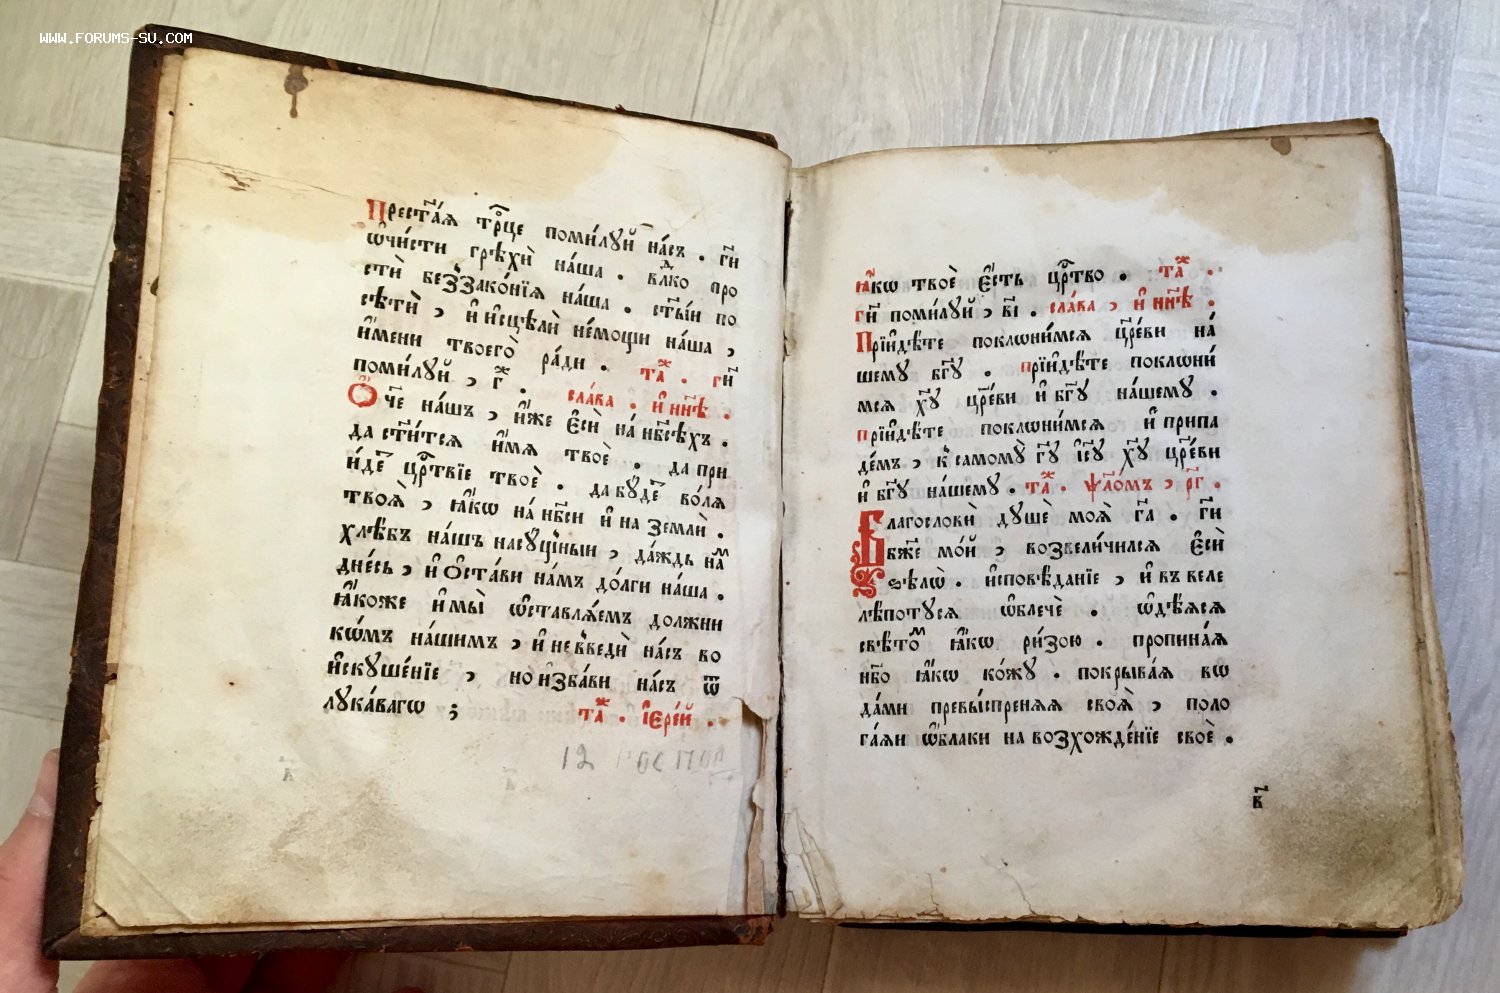 WWW.FORUMS-SU.COM
Прест҃а́ѧ тр҇о́це поми́лꙋй на́съ . гд҇и
ѡ҆чи́сти грѣхѝ на́ша . влⷣко про
стѝ беззако́нїѧ на́ша . ст҃ы́и по
сѣтѝ , и҆ и҆сцѣлѝ не́мощи на́ша ,
и҆́мени твоегѡ̀ ра́ди . таⷤ . гд҇и
поми́лꙋй , г҃ . сла́ва . и҆ нн҃ѣ .
Ѻ҆́ч҃е на́шъ , и҆́же є҆сѝ на́ нб҃сѣхъ .
да ст҃и́тсѧ и҆́мѧ твоѐ . да прі
и́деⷮ црⷭ҇твїе твоѐ . да бꙋ́деⷮ во́лѧ
твоѧ̀ , ꙗ҆́кѡ на́ нб҃си и҆ на землѝ .
хлѣ́бъ на́шъ насꙋ́щныи , да́ждь на́ⷨ
дне́сь , и҆ ѻ҆ста́ви на́мъ до́лги на́ша .
ꙗ҆́коже и҆ мы̀ ѡ҆ставлѧ́емъ должни
кѡ́мъ на́шимъ , и҆ не введѝ на́съ во
и҆скꙋше́нїе , но и҆зба́ви на́съ ѿ
лꙋка́вагѡ ; таⷤ . і҆ере́й .
ꙗ҆́кѡ твоѐ є҆́сть црⷭ҇тво . таⷤ .
гд҇и поми́лꙋй , в҃і . сла́ва , и҆ нн҃ѣ .
Прїи҆дѣ́те поклони́мсѧ цр҃е́ви на́
шемꙋ бг҃ꙋ . прїи҆дѣ́те поклони́
мсѧ хрⷭ҇тꙋ̀ цр҃е́ви и҆ бг҃ꙋ на́шемꙋ .
прїи҆дѣ́те поклони́мсѧ и҆ припа
де́мъ , к самомꙋ̀ гд҇ꙋ і҆сꙋ хрⷭ҇тꙋ̀ цр҃е́ви
и҆ бг҃ꙋ на́шемꙋ . таⷤ . ѱало́мъ , рг҃ .
Благословѝ дꙋшѐ моѧ̀ гд҇а . гд҇и
бж҃е мо́й , возвели́чилсѧ є҆сѝ
ѕѣлѡ̀ . и҆сповѣ́данїе , и҆ въ веле
лѣ́потꙋсѧ ѡ҆блечѐ . ѡ҆дѣ́ѧсѧ
свѣ́тоⷨ ꙗ҆́кѡ ри́зою . пропина́ѧ
нб҃о ꙗ҆́кѡ ко́жꙋ . покрыва́ѧ вѡ
да́ми превы́спреннѧѧ своѧ̀ , поло
га́ѧи ѡ҆́блаки на восхожде́нїе своѐ .
в҃